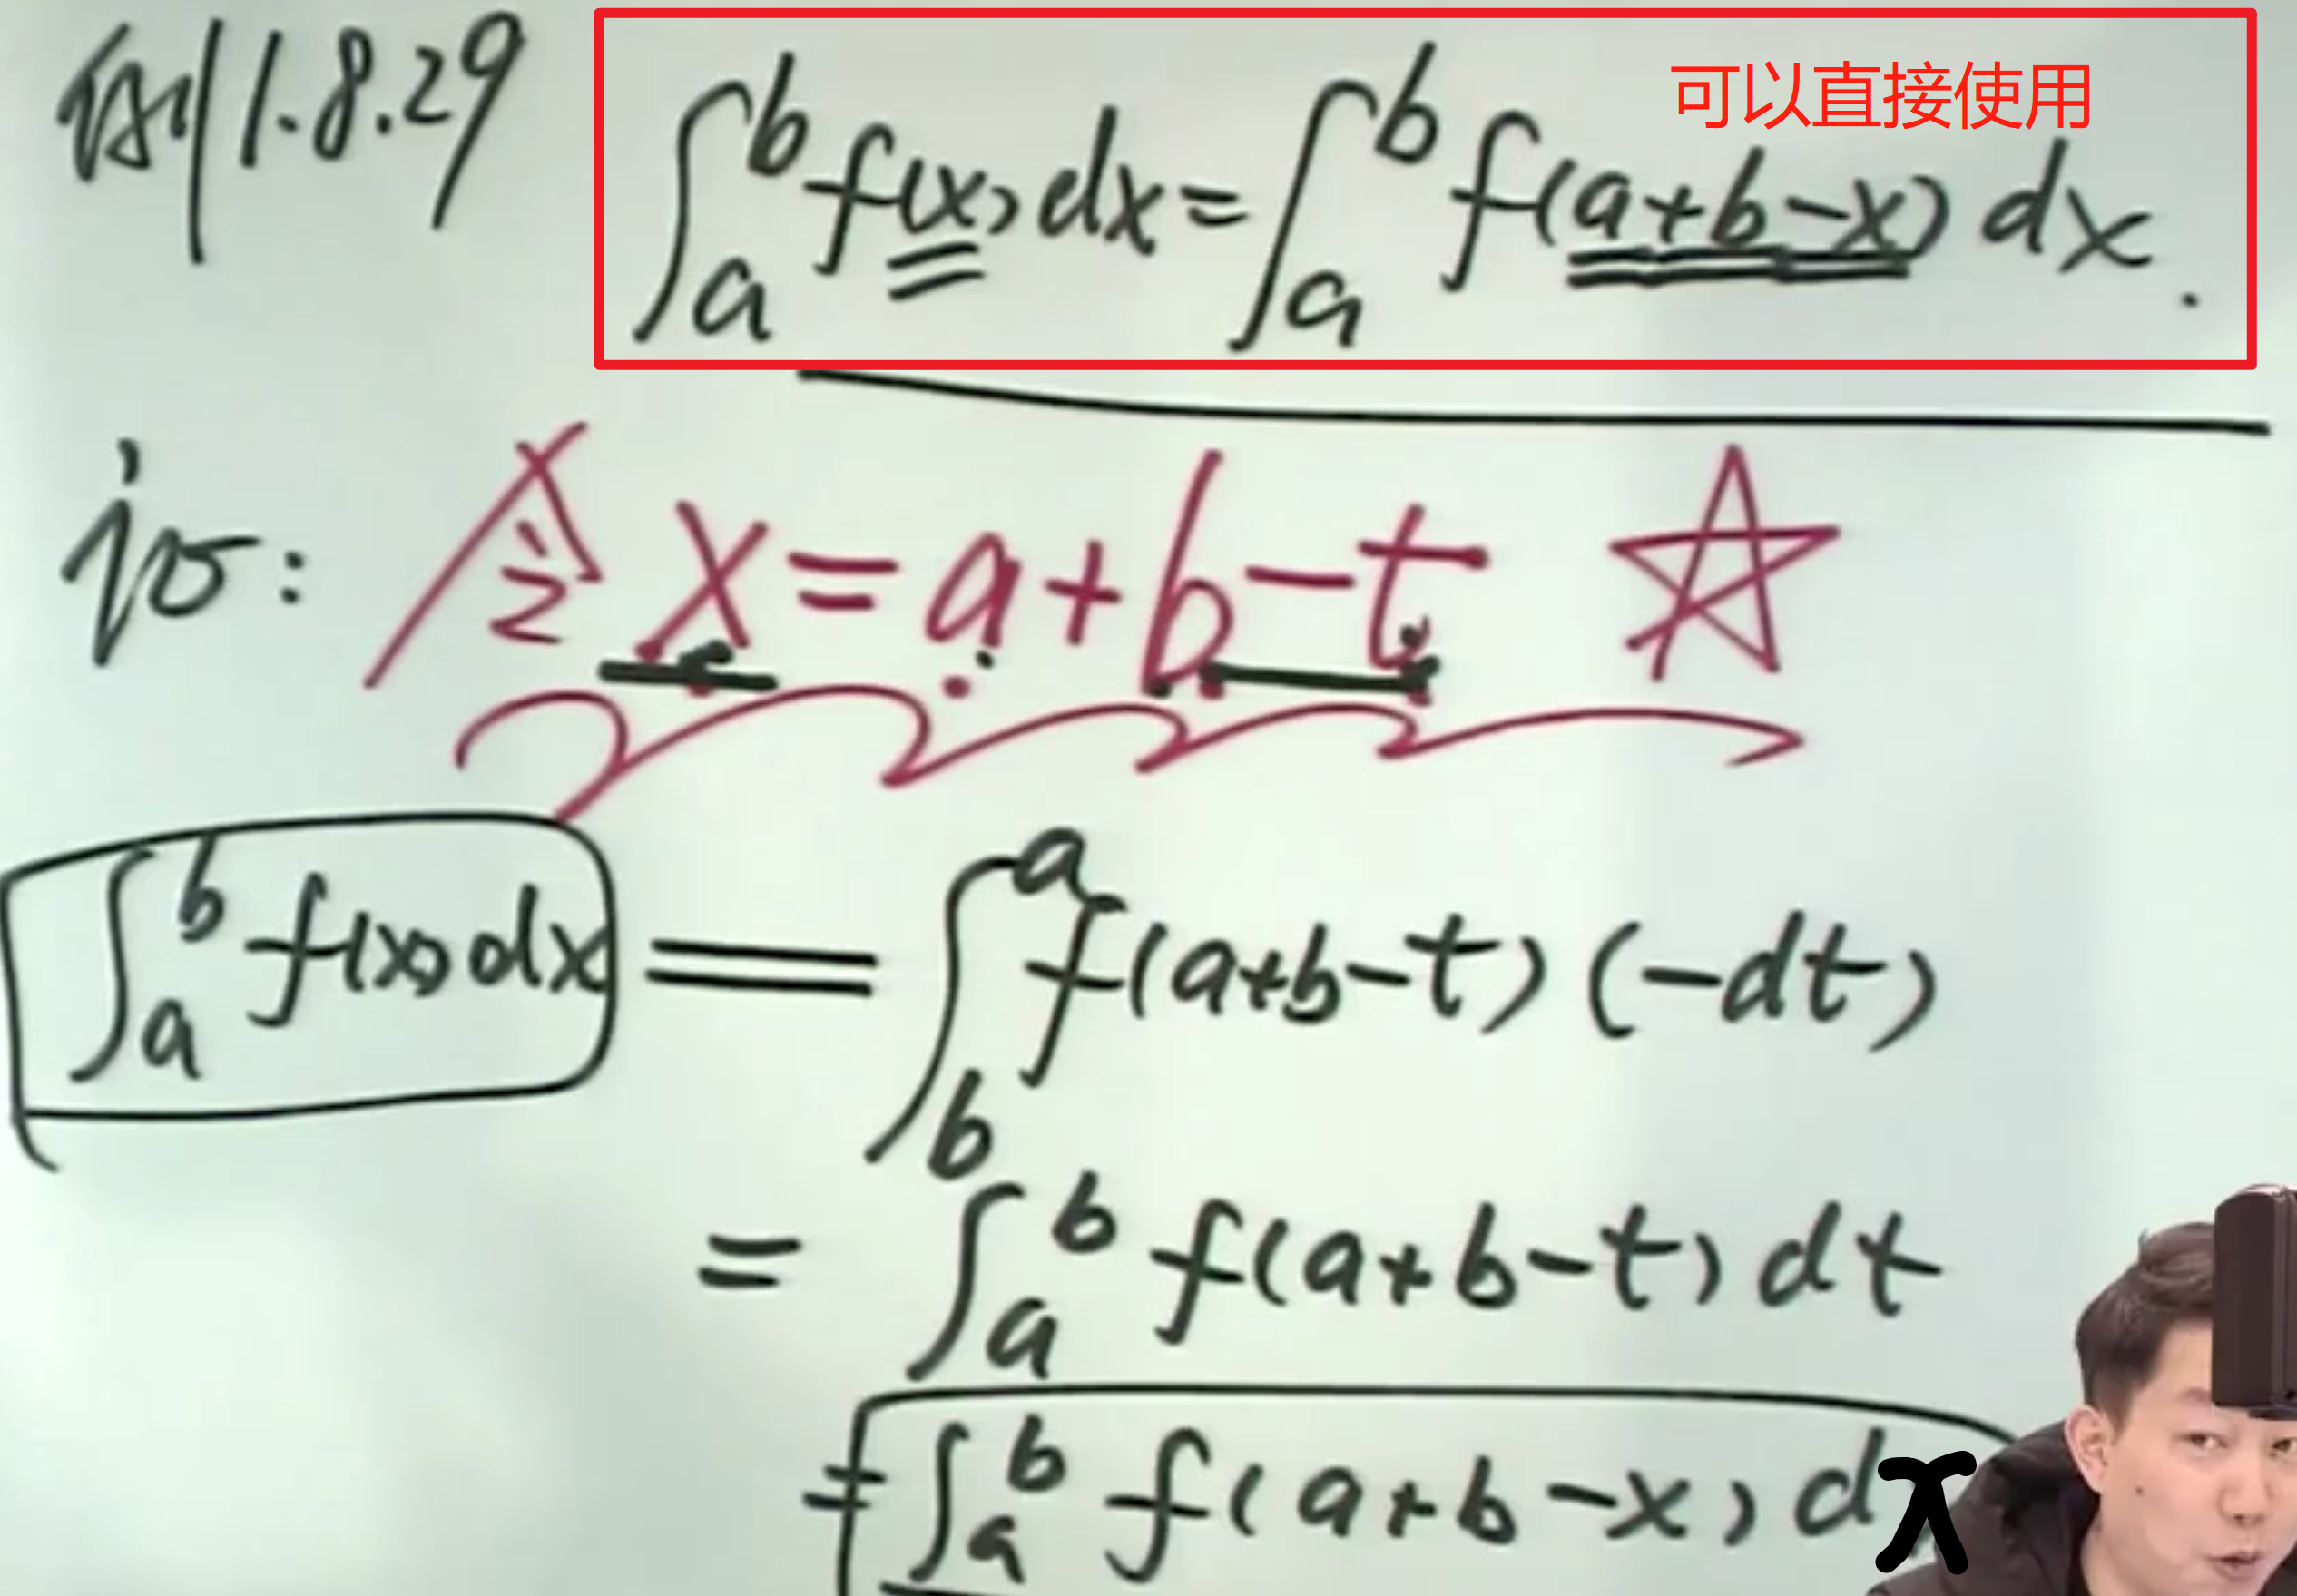 例1.8.29
可以直接使用
∫_a^b f(x)dx=∫_a^b f(a+b-x)dx.
证: 令 x=a+b-t ☆
∫_a^b f(x)dx = ∫_b^a f(a+b-t)(-dt)
= ∫_a^b f(a+b-t)dt
= ∫_a^b f(a+b-x)dx